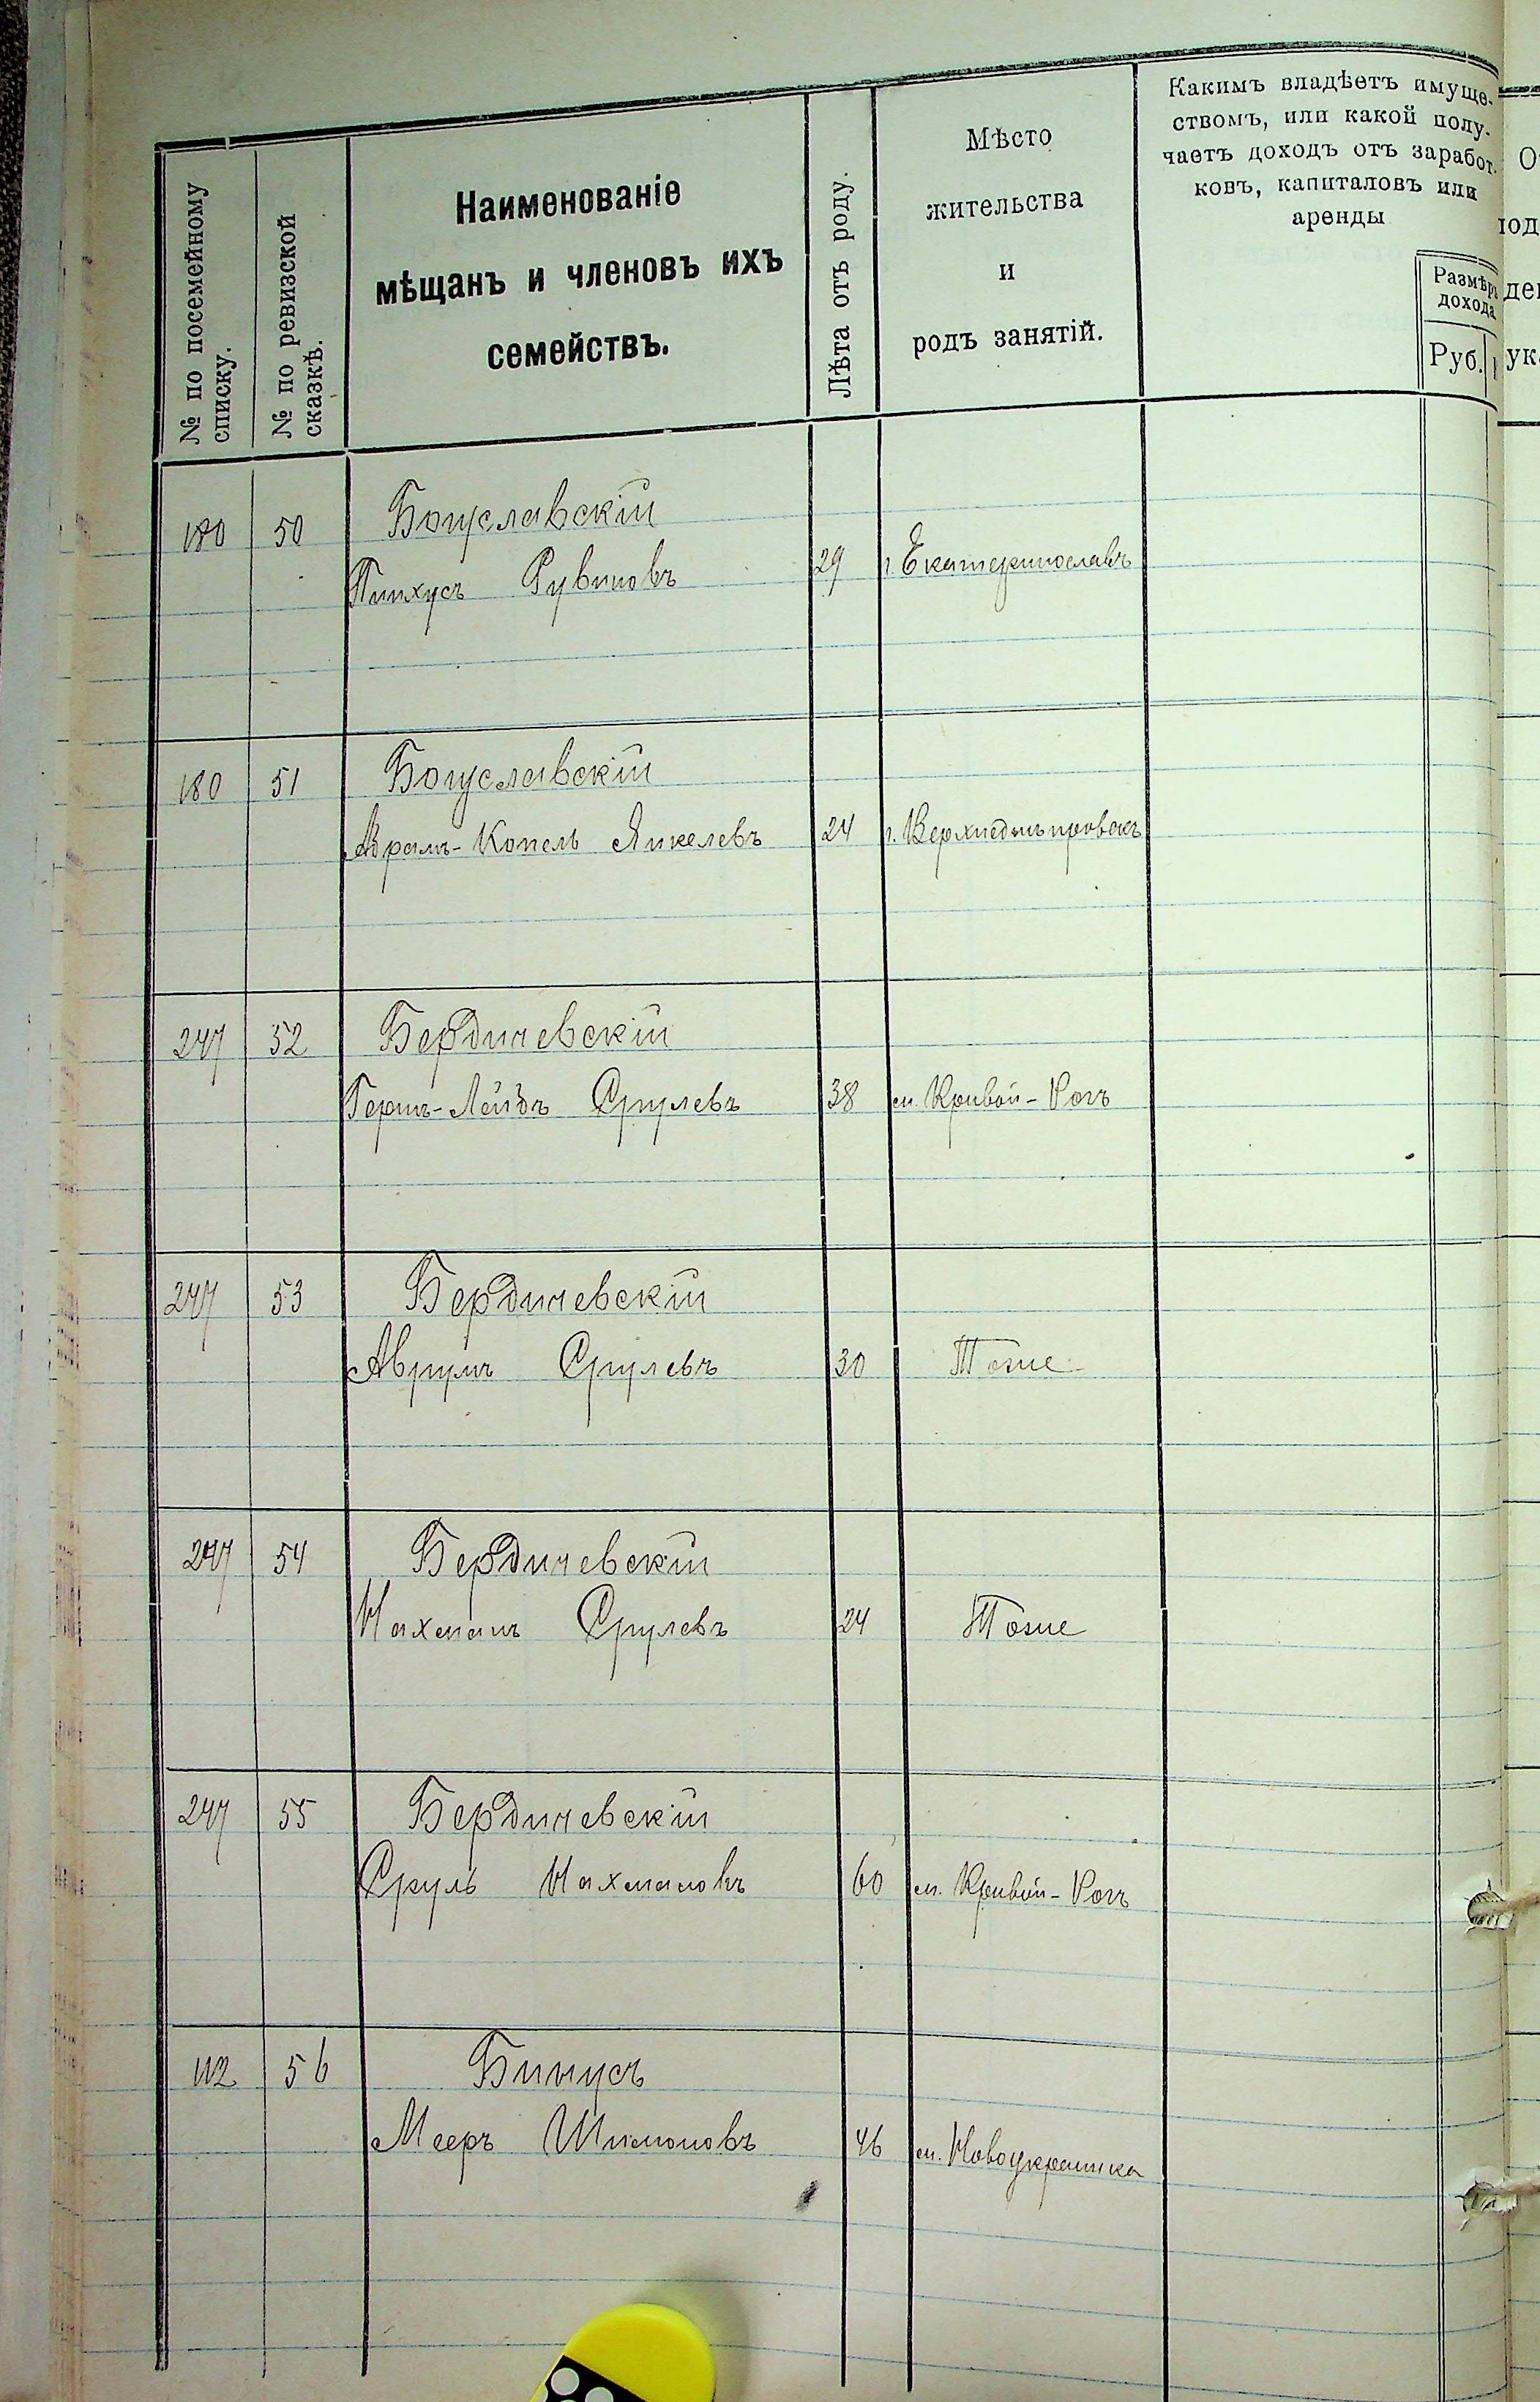 № по посемейному
списку.
№ по ревизской
сказкѣ.
Наименованіе
мѣщанъ и членовъ ихъ
семействъ.
Лѣта отъ роду.
Мѣсто
жительства
и
родъ занятій.
Какимъ владѣетъ имуще-
ствомъ, или какой полу-
чаетъ доходъ отъ заработ-
ковъ, капиталовъ или
аренды
Размѣръ
дохода
Руб.
180 50 Богуславскій
Пинхусъ Рувиновъ 29 г. Екатеринославъ
180 51 Богуславскій
Абрамъ-Копель Янкелевъ 24 г. Верхнеднѣпровскъ
247 52 Бердичевскій
Гершъ-Лейбъ Срулевъ 38 м. Кривой-Рогъ
247 53 Бердичевскій
Аврумъ Срулевъ 30 Тоже
247 54 Бердичевскій
Нахманъ Срулевъ 24 Тоже
247 55 Бердичевскій
Сруль Нахмановъ 60 м. Кривой-Рогъ
112 56 Бинусъ
Мееръ Шимоновъ 46 м. Новоукраинка